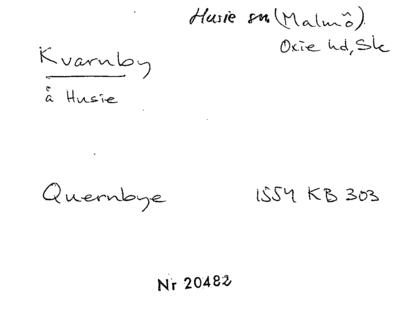 Husie sn (Malmö)
Oxie hd, Sk
Kvarnby
å Husie
Quernbye 1554 KB 303
Nr 20482